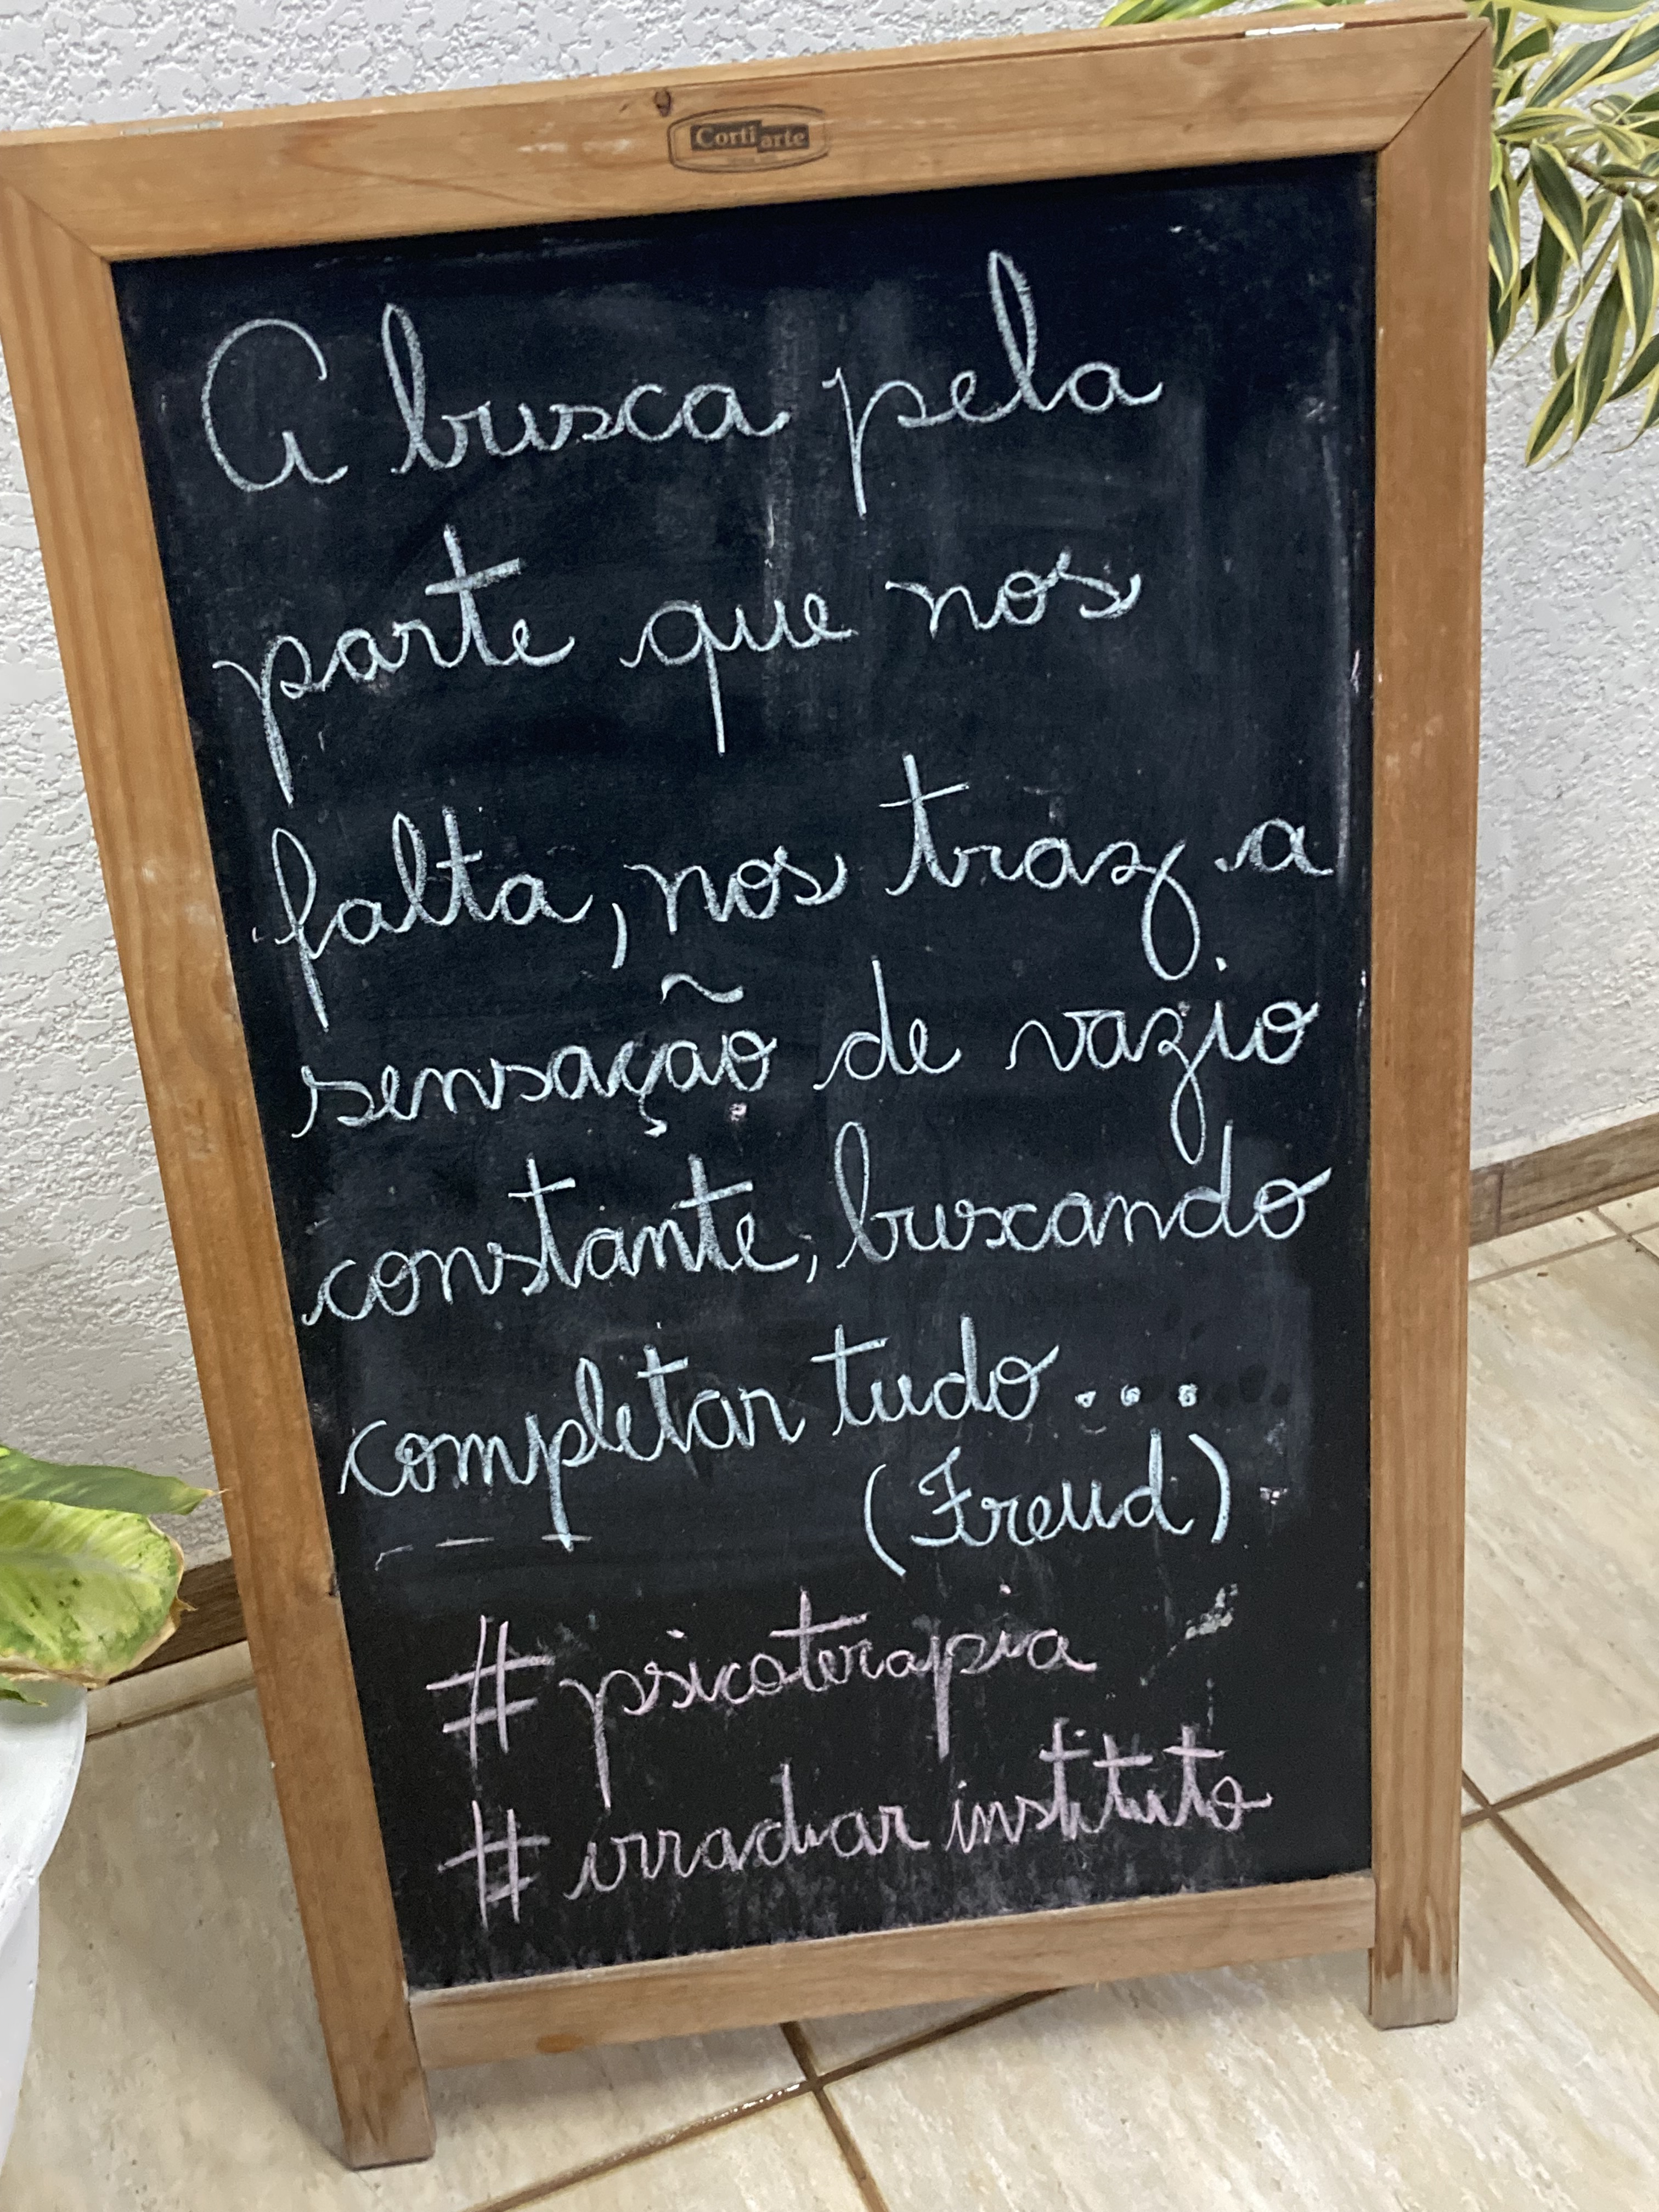 Corti arte
A busca pela
parte que nos
falta, nos traz a
sensação de vazio
constante, buscando
completar tudo...
(Freud)
#psicoterapia
#irradiar instituto